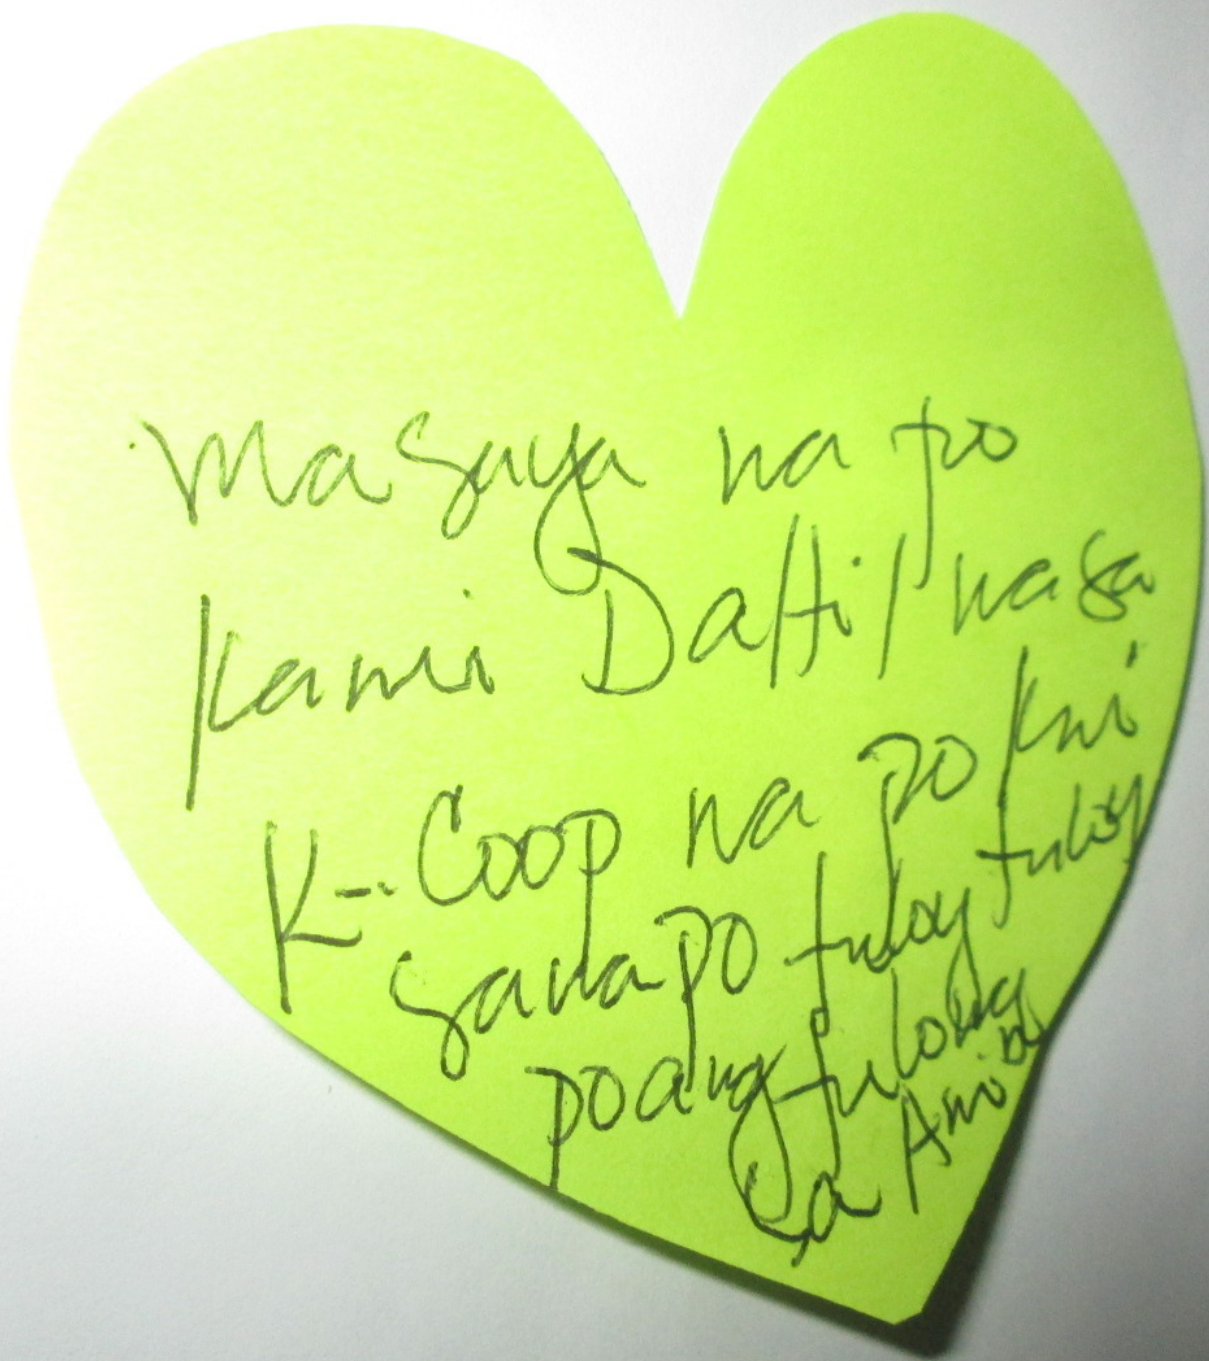 Masaya na po
Kami Dahil nasa
K-Coop na po kmi
sana po tuloy tuloy
po ang tulong
sa Amin